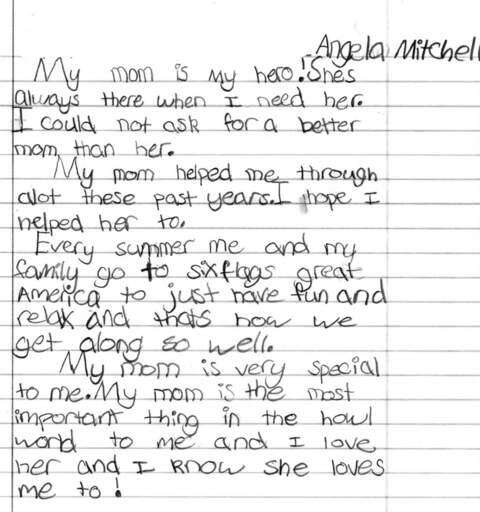 Angela Mitchell
My mom is my hero! Shes
always there when I need her.
I could not ask for a better
mom than her.
My mom helped me through
alot these past years. I hope I
helped her to.
Every summer me and my
family go to sixflags great
America to just have fun and
relax and thats how we
get along so well.
My mom is very special
to me. My mom is the most
important thing in the howl
world to me and I love
her and I know she loves
me to!